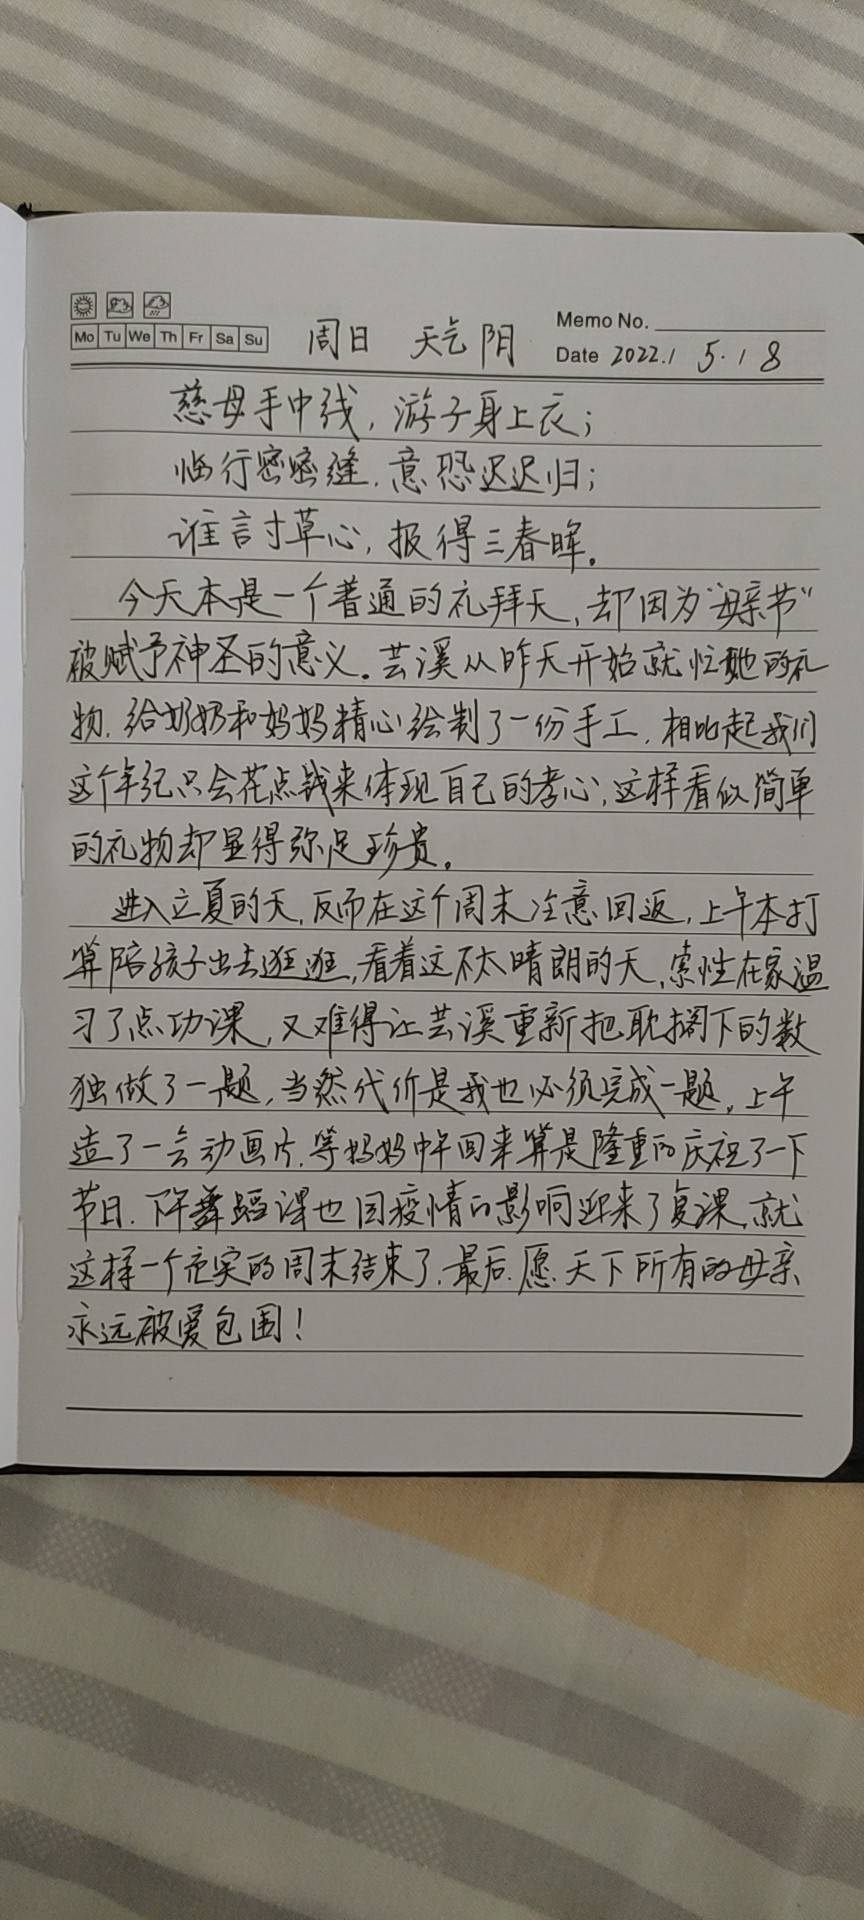 Mo Tu We Th Fr Sa Su
周日 天气 阴
Memo No.
Date 2022.1 5.18
慈母手中线，游子身上衣；
临行密密缝，意恐迟迟归；
谁言寸草心，报得三春晖。
今天本是一个普通的礼拜天，却因为“母亲节”
被赋予神圣的意义。芸溪从昨天开始就忙她的礼
物，给奶奶和妈妈精心绘制了一份手工，相比起我们
这个年纪只会花点钱来体现自己的孝心，这样看似简单
的礼物却显得弥足珍贵。
进入立夏的天，反而在这个周末冷意回返，上午本打
算陪孩子出去逛逛，看着这不太晴朗的天，索性在家温
习了点功课，又难得让芸溪重新把耽搁下的数
独做了一题，当然代价是我也必须完成一题，上午
造了一会动画片，等妈妈中午回来算是隆重的庆祝了一下
节日，下午舞蹈课也因疫情的影响迎来了复课，就
这样一个充实的周末结束了，最后，愿天下所有的母亲
永远被爱包围！